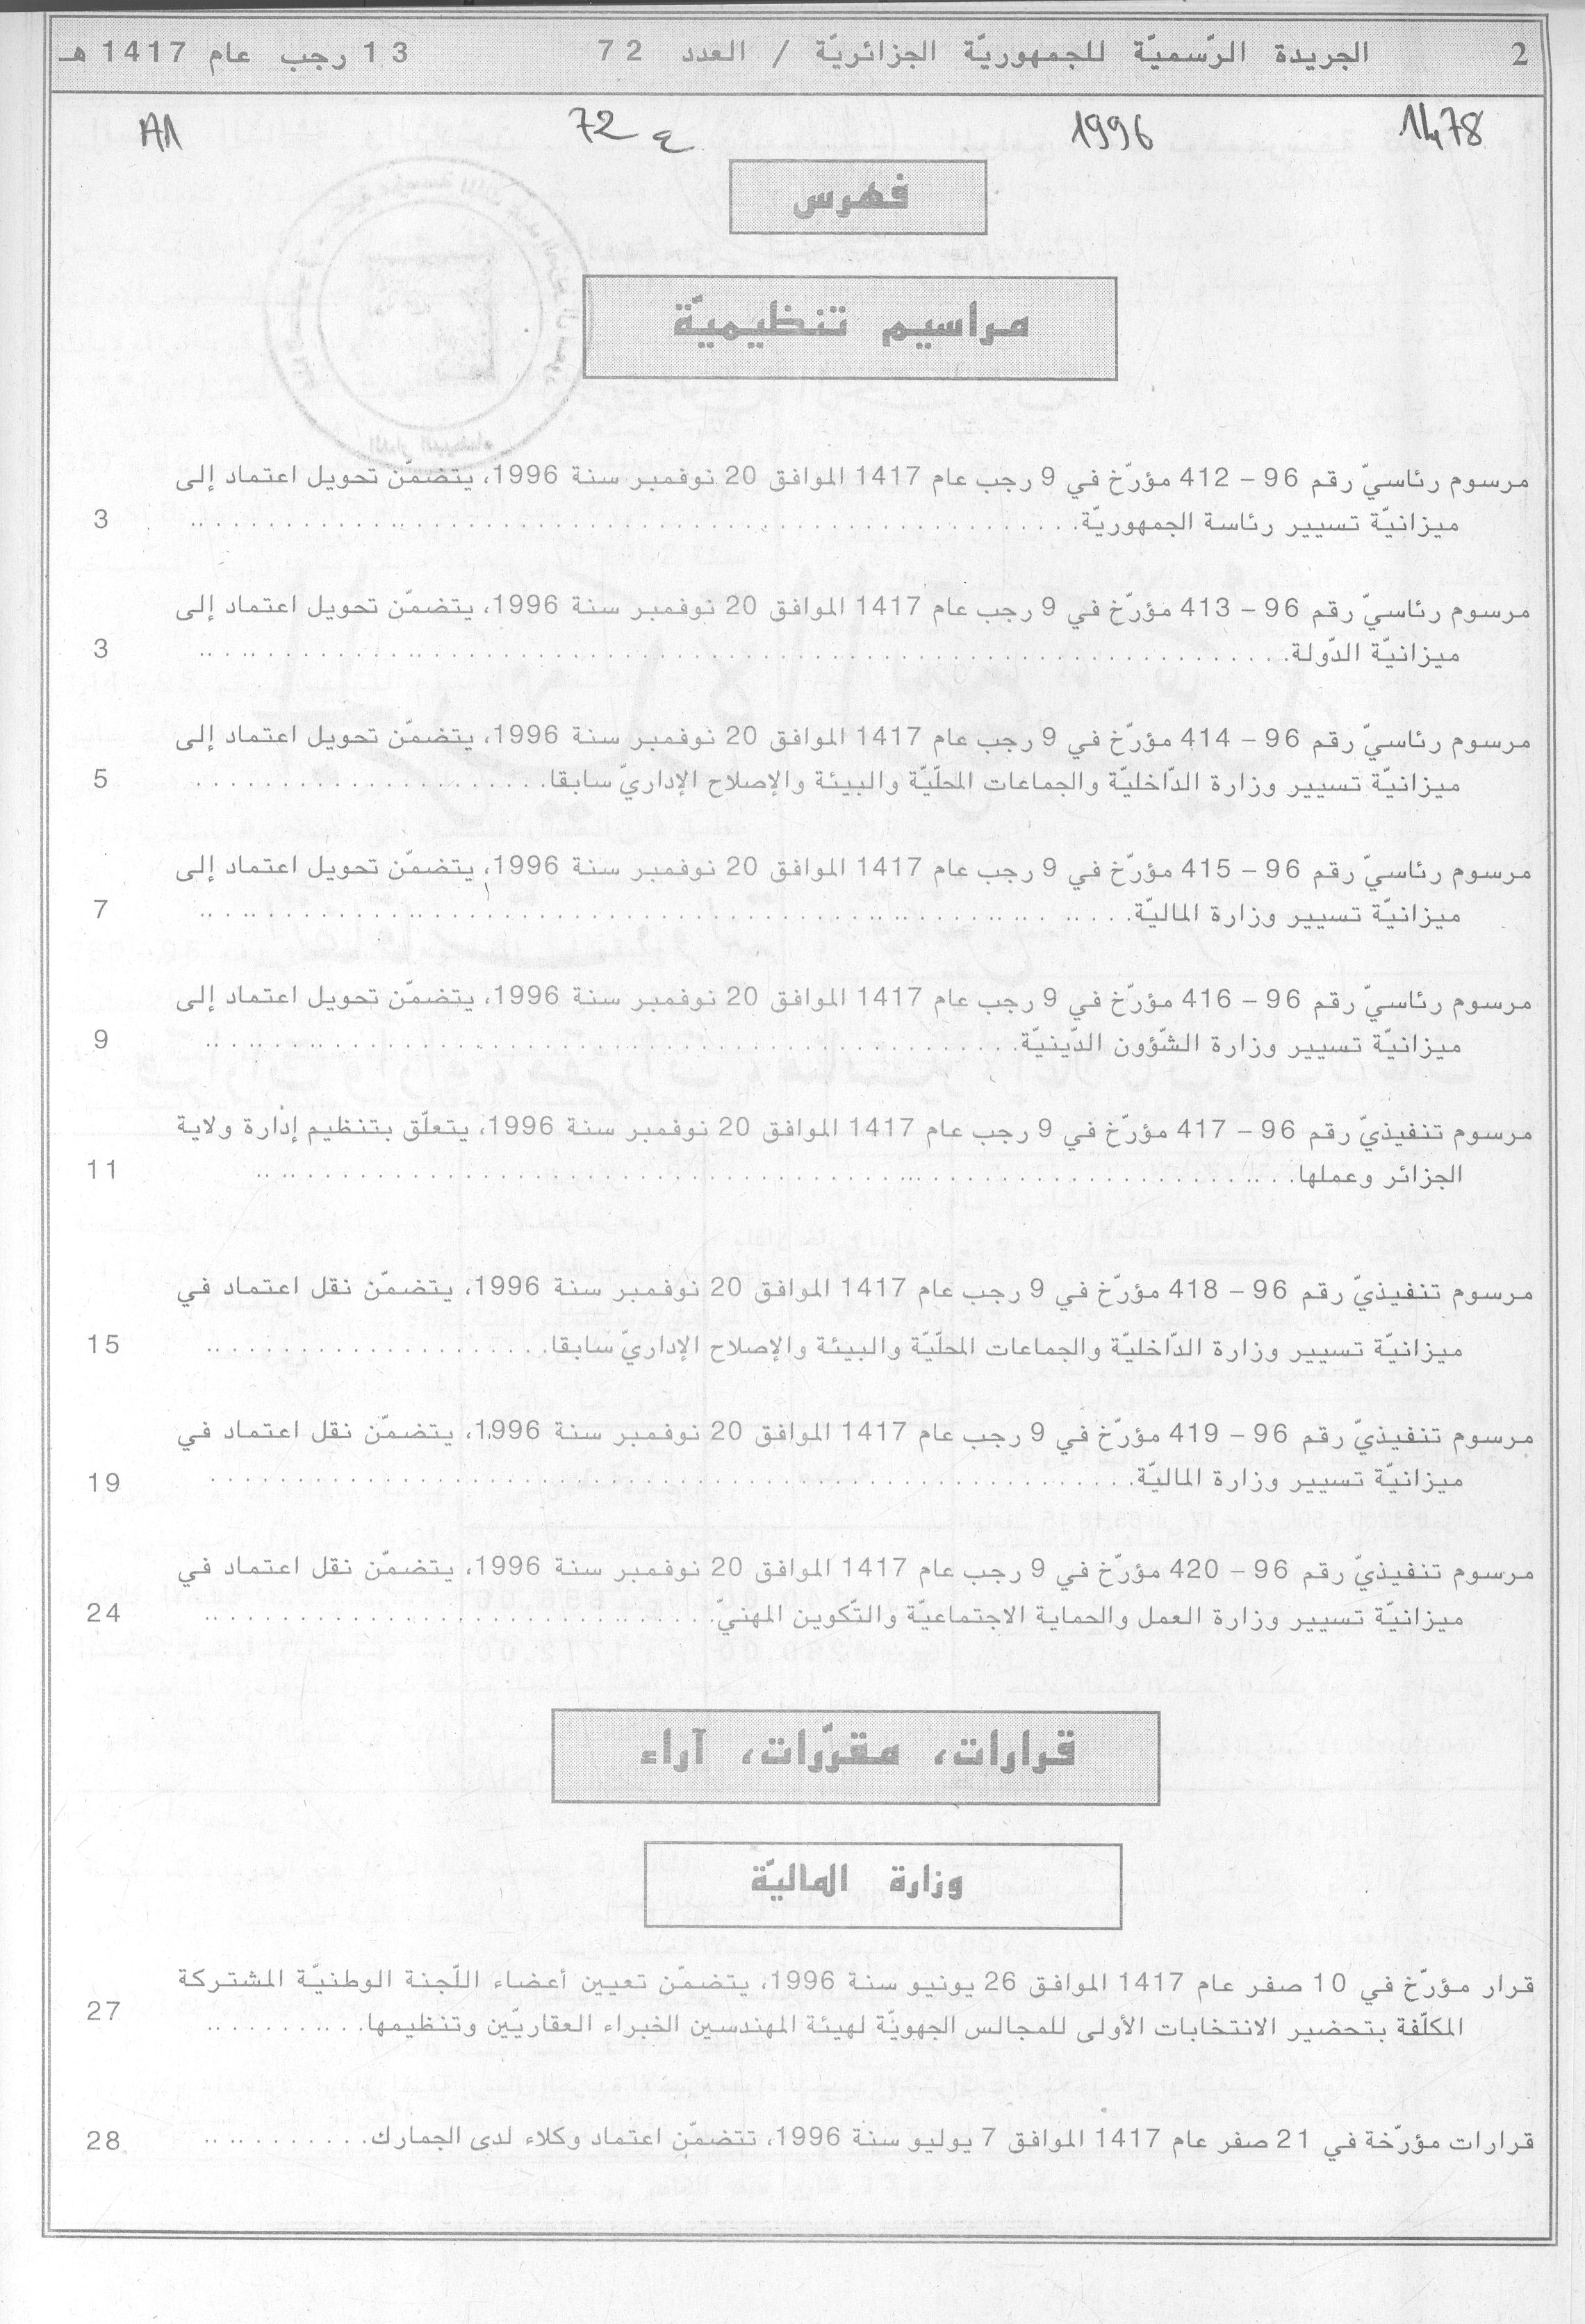 2 الجريدة الرّسميّة للجمهوريّة الجزائريّة / العدد 72 13 رجب عام 1417 هـ
1478 1996 ع 72 A1
فهرس
مراسيم تنظيميّة
مرسوم رئاسيّ رقم 96 – 412 مؤرّخ في 9 رجب عام 1417 الموافق 20 نوفمبر سنة 1996، يتضمّن تحويل اعتماد إلى
ميزانيّة تسيير رئاسة الجمهوريّة. 3
مرسوم رئاسيّ رقم 96 – 413 مؤرّخ في 9 رجب عام 1417 الموافق 20 نوفمبر سنة 1996، يتضمّن تحويل اعتماد إلى
ميزانيّة الدّولة. 3
مرسوم رئاسيّ رقم 96 – 414 مؤرّخ في 9 رجب عام 1417 الموافق 20 نوفمبر سنة 1996، يتضمّن تحويل اعتماد إلى
ميزانيّة تسيير وزارة الدّاخليّة والجماعات المحلّيّة والبيئة والإصلاح الإداريّ سابقا. 5
مرسوم رئاسيّ رقم 96 – 415 مؤرّخ في 9 رجب عام 1417 الموافق 20 نوفمبر سنة 1996، يتضمّن تحويل اعتماد إلى
ميزانيّة تسيير وزارة الماليّة. 7
مرسوم رئاسيّ رقم 96 – 416 مؤرّخ في 9 رجب عام 1417 الموافق 20 نوفمبر سنة 1996، يتضمّن تحويل اعتماد إلى
ميزانيّة تسيير وزارة الشّؤون الدّينيّة. 9
مرسوم تنفيذيّ رقم 96 – 417 مؤرّخ في 9 رجب عام 1417 الموافق 20 نوفمبر سنة 1996، يتعلّق بتنظيم إدارة ولاية
الجزائر وعملها. 11
مرسوم تنفيذيّ رقم 96 – 418 مؤرّخ في 9 رجب عام 1417 الموافق 20 نوفمبر سنة 1996، يتضمّن نقل اعتماد في
ميزانيّة تسيير وزارة الدّاخليّة والجماعات المحلّيّة والبيئة والإصلاح الإداريّ سابقا. 15
مرسوم تنفيذيّ رقم 96 – 419 مؤرّخ في 9 رجب عام 1417 الموافق 20 نوفمبر سنة 1996، يتضمّن نقل اعتماد في
ميزانيّة تسيير وزارة الماليّة. 19
مرسوم تنفيذيّ رقم 96 – 420 مؤرّخ في 9 رجب عام 1417 الموافق 20 نوفمبر سنة 1996، يتضمّن نقل اعتماد في
ميزانيّة تسيير وزارة العمل والحماية الاجتماعيّة والتّكوين المهنيّ. 24
قرارات، مقرّرات، آراء
وزارة الماليّة
قرار مؤرّخ في 10 صفر عام 1417 الموافق 26 يونيو سنة 1996، يتضمّن تعيين أعضاء اللّجنة الوطنيّة المشتركة
المكلّفة بتحضير الانتخابات الأولى للمجالس الجهويّة لهيئة المهندسين الخبراء العقاريّين وتنظيمها. 27
قرارات مؤرّخة في 21 صفر عام 1417 الموافق 7 يوليو سنة 1996، تتضمّن اعتماد وكلاء لدى الجمارك. 28